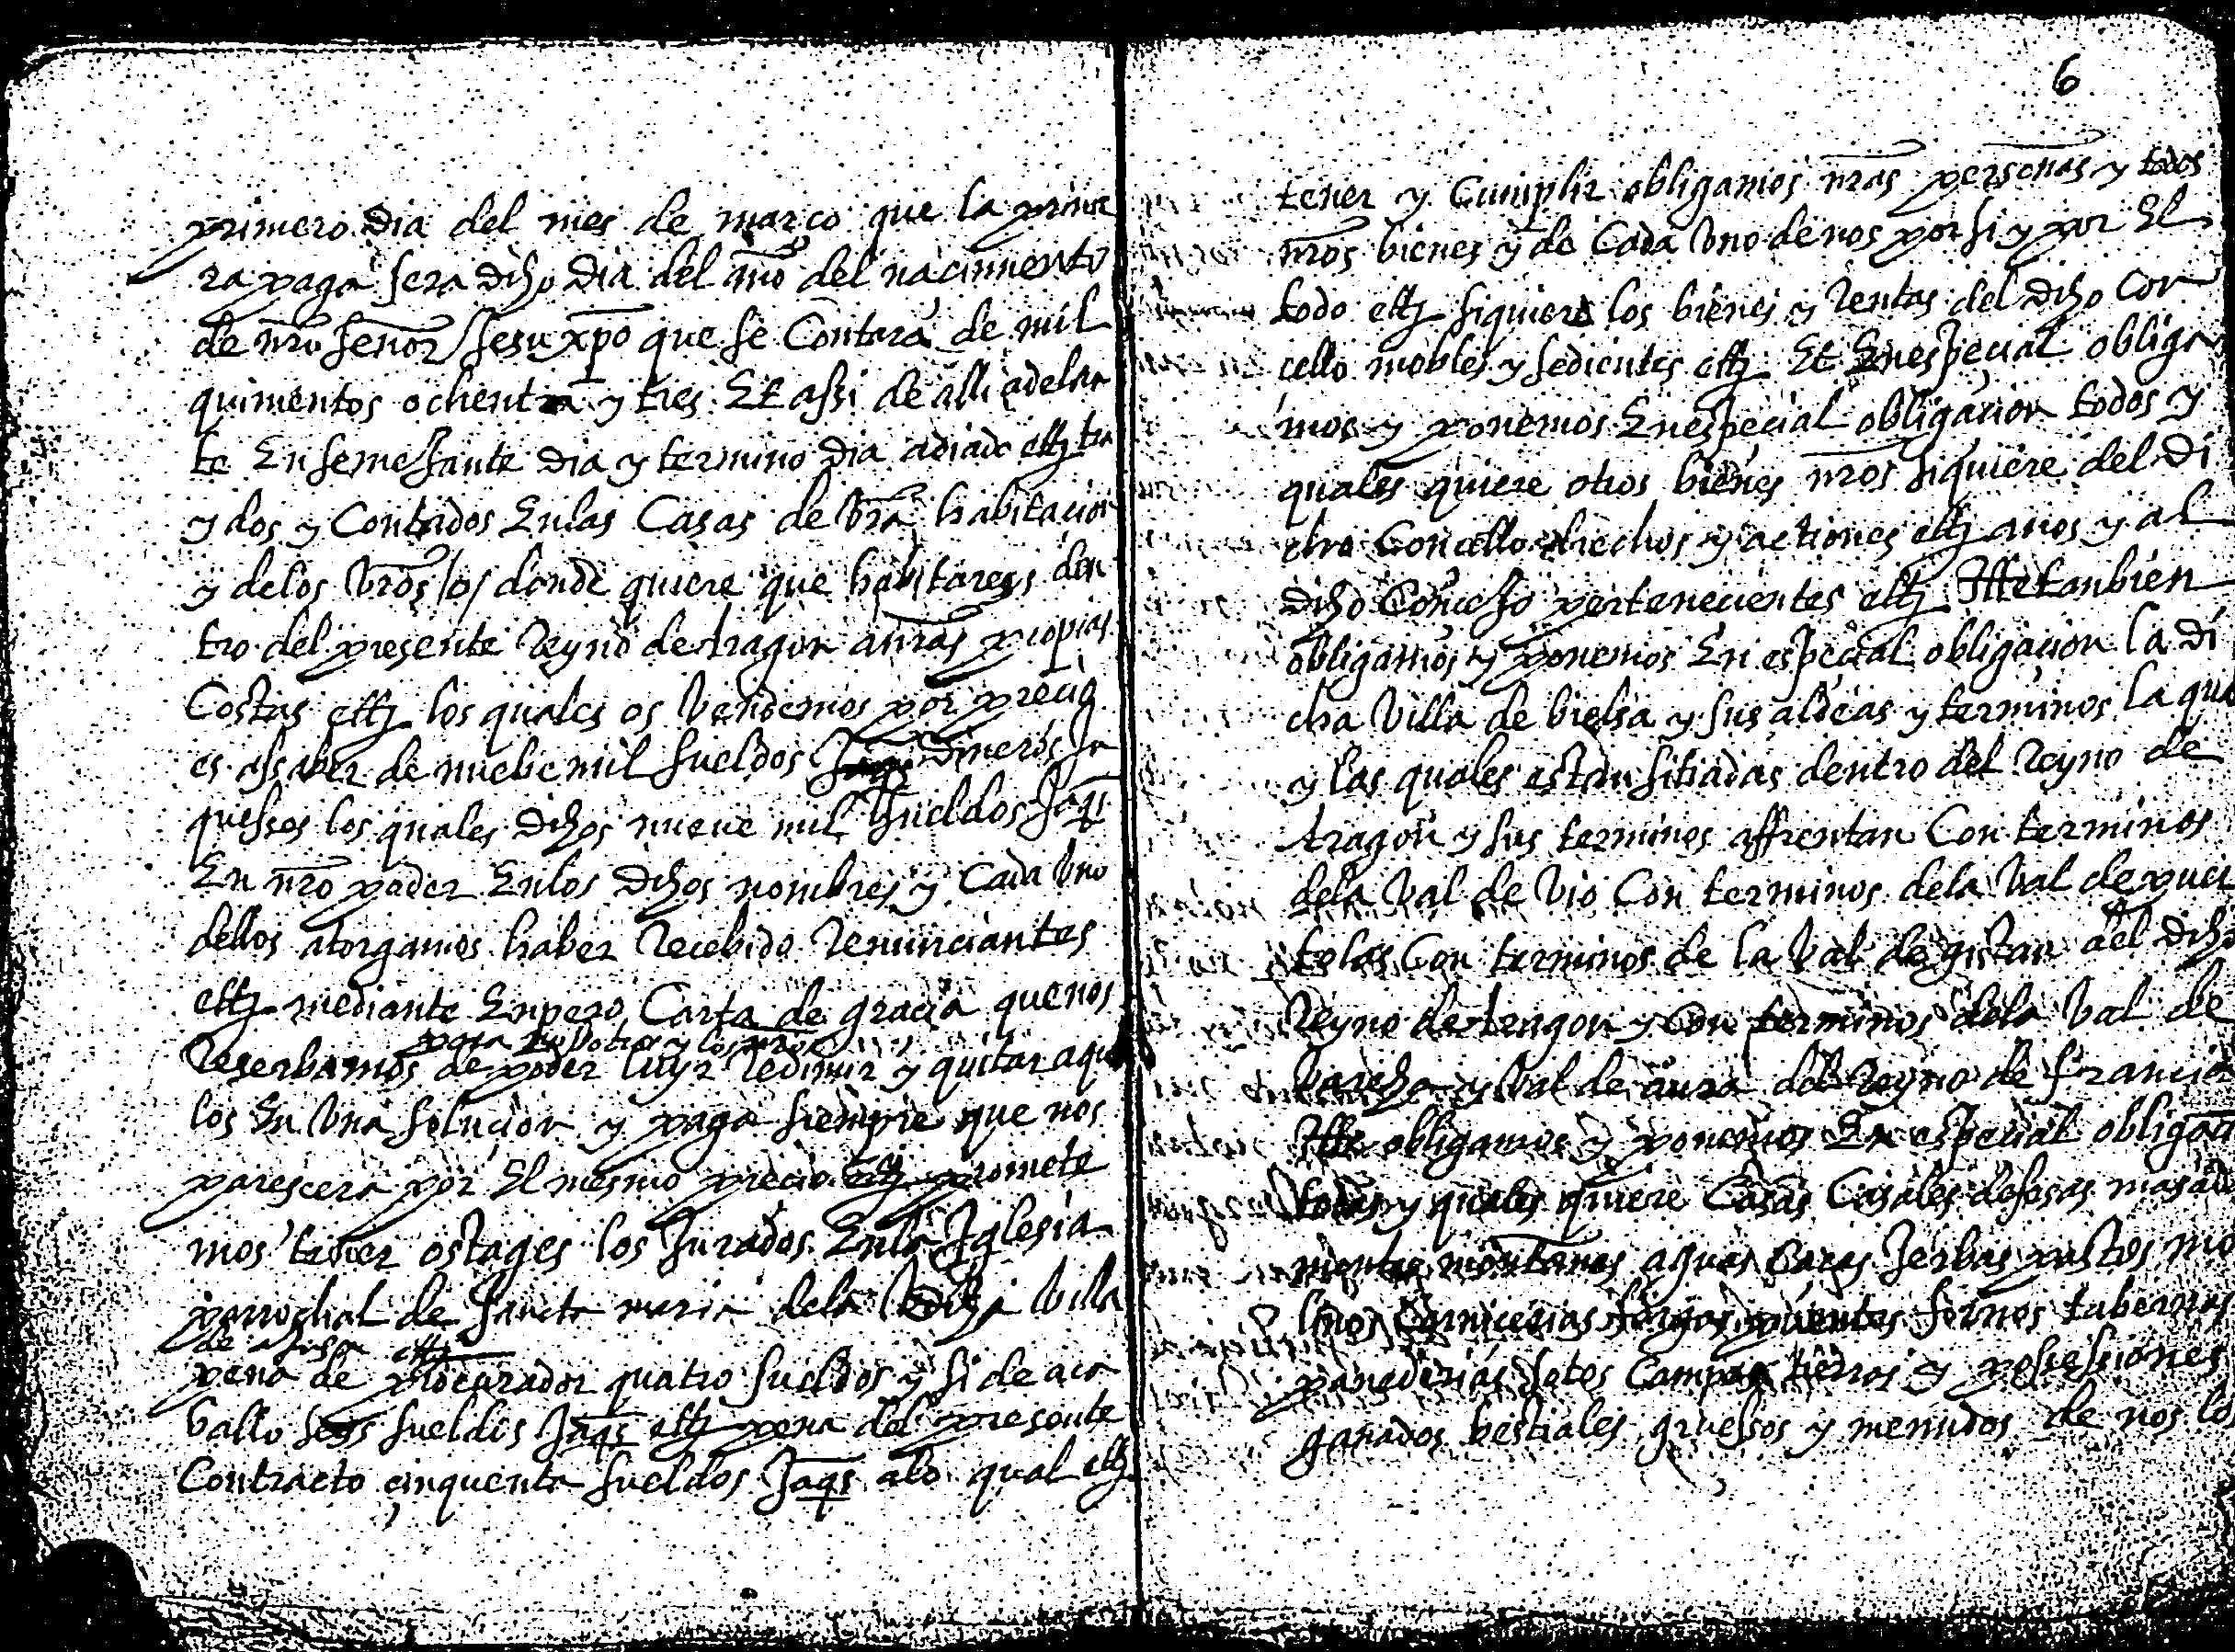 primero dia del mes de março que la prime
ra paga sera dicho dia del año del nacimiento
de nro señor Jesu xpo que se Contara de mil
quinientos ochenta y tres Et assi de alli adelan
te En semejante dia y termino dia adiado ettz tra
y dos y Contados Enlas Casas de vra habitacion
y delos vros /o/ donde quiere que habitareys den
tro del presente Reyno de Aragon a nras propias
Costas ettz los quales os Vendemos por precio
es assaber de nuebe mil sueldos dineros Ja
quesses los quales dichos nueve mil sueldos Jaqs
En nro poder Enlos dichos nombres y Cada Uno
dellos atorgamos haber Recebido Renunciantes
ettz mediante Empero Carta de gracia que nos
para vosotros y los nros
Reserbamos de poder luyr Redimir y quitar aque
los En Una solucion y paga siempre que nos
parescera por El mesmo precio ettz promete
mos tener ostages los Jurados Enla Iglesia
parrochal de Sancta maria dela dicha Villa
de ettz
pena de procurador quatro sueldos y si de aca
ballo seys sueldos Jaqs ettz pena del presente
Contracto cinquenta sueldos Jaqs alo qual ettz
6
tener y Cumplir obligamos nras personas y todos
nros bienes y de Cada Uno de nos por si y por El
todo ettz siquiere los bienes y Rentas del dicho Con
cello mobles y sedientes ettz Et Enespecial obliga
mos y ponemos Enespecial obligacion todos y
quales quiere otros bienes nros siquiere del di
cho Concello drechos y actiones ettz a nos y al
dicho Concejo pertenecientes ettz Itte tanbien
obligamos y ponemos En especial obligacion la di
cha Villa de bielsa y sus aldeas y terminos la qual
y las quales estan sitiadas dentro del Reyno de
Aragon y sus terminos affrentan Con terminos
dela Val de Vio Con terminos dela Val de puer
tolas Con terminos de la Val de gistau del dicho
Reyno de Aragon y Con terminos dela Val de
varecha y Val de aura del Reyno de francia
Itte obligamos y ponemos En especial obligaci
todas y quales quiere Casas Casales defesas masad
montes montanas aguas Cazas Jerbas pastos mo
linos Carnicerias fargas puentes fornos tabernas
panaderias sotos Campos tierras y possessiones
ganados bestiales gruessos y menudos de nos lo